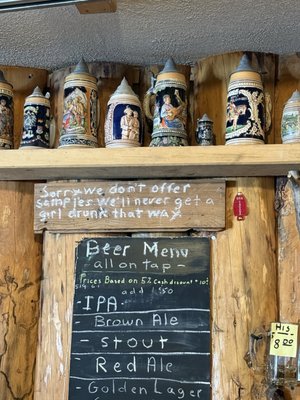 Sorry we don't offer
samples we'll never get a
girl drunk that way
Beer Menu
all on tap -
Prices Based on 5% Cash discount
add
- IPA
- Brown Ale
- Stout
- Red Ale
- Golden Lager
His
8.20